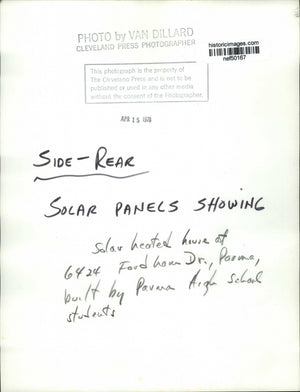 PHOTO by VAN DILLARD
CLEVELAND PRESS PHOTOGRAPHER
historicimages.com
nef50167
This photograph is the property of
The Cleveland Press and is not to be
published or used in any other media
without the consent of the Photographer.
APR 15 1978
SIDE-REAR
SOLAR PANELS SHOWING
Solar heated house at
6424 Fordham Dr., Parma,
built by Parma High School
students